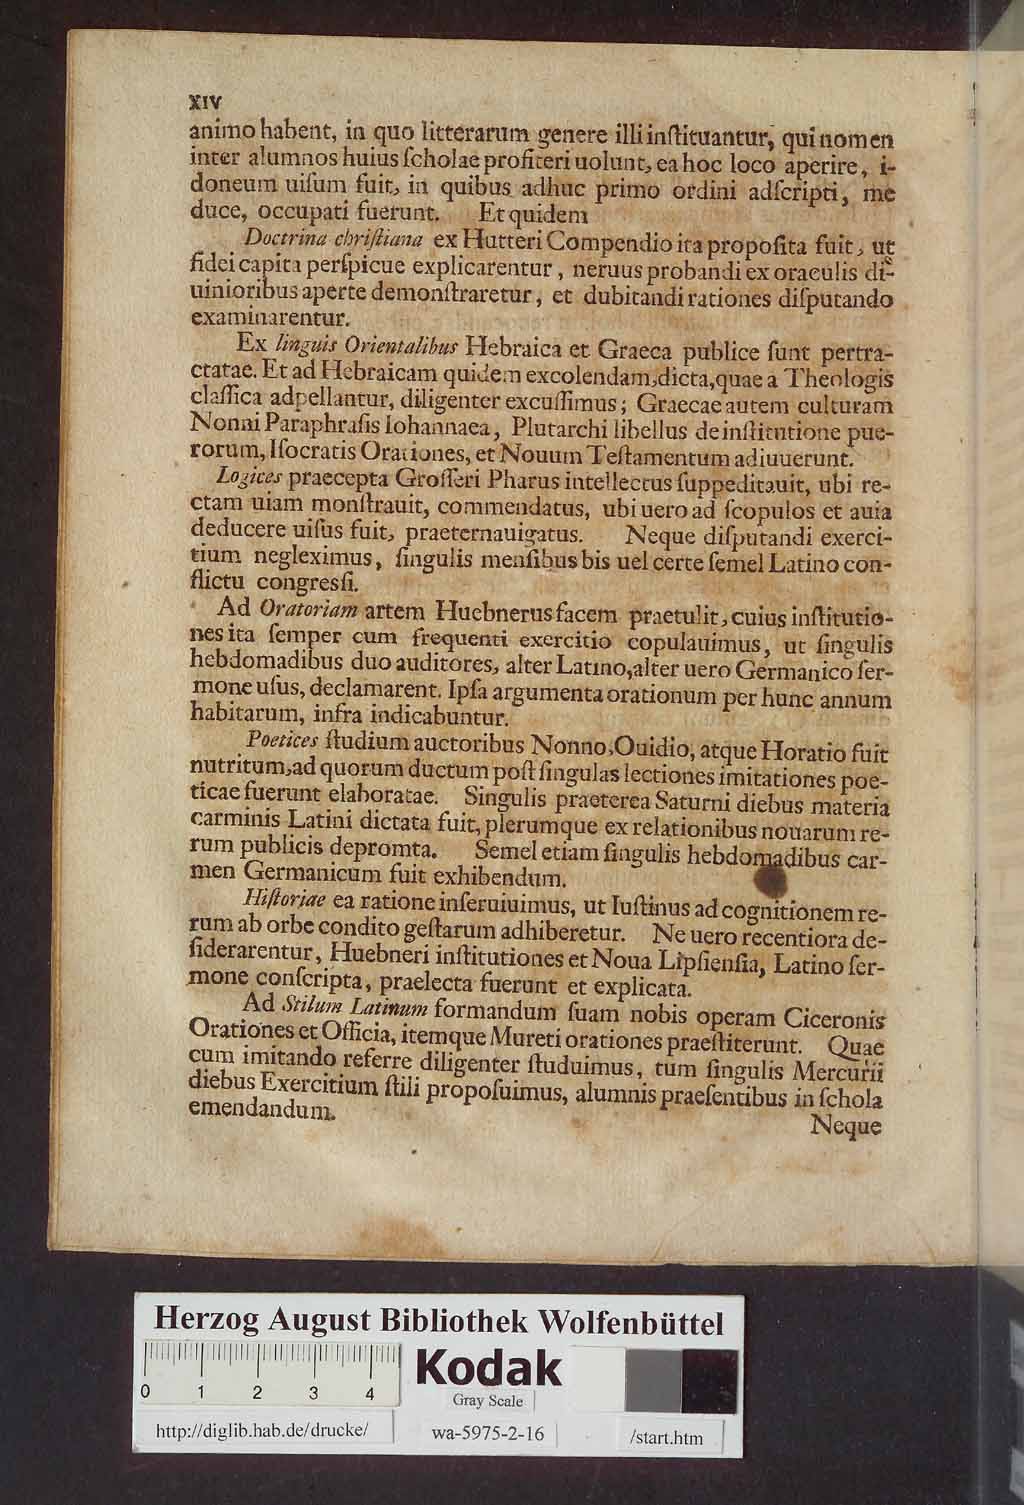 XIV
animo habent, in quo litterarum genere illi inſtituantur, qui nomen
inter alumnos huius ſcholae profiteri uolunt, ea hoc loco aperire, i-
doneum uiſum fuit, in quibus adhuc primo ordini adſcripti, me
duce, occupati fuerunt. Et quidem
Doctrina chriſtiana ex Hutteri Compendio ita propoſita fuit, ut
fidei capita perſpicue explicarentur, neruus probandi ex oraculis di-
uinioribus aperte demonſtraretur, et dubitandi rationes diſputando
examinarentur.
Ex linguis Orientalibus Hebraica et Graeca publice ſunt pertra-
ctatae. Et ad Hebraicam quidem excolendam, dicta, quae a Theologis
claſſica adpellantur, diligenter excuſſimus; Graecae autem culturam
Nonni Paraphraſis Iohannaea, Plutarchi libellus de inſtitutione pue-
rorum, Iſocratis Orationes, et Nouum Teſtamentum adiuuerunt.
Logices praecepta Groſſeri Pharus intellectus ſuppeditauit, ubi re-
ctam uiam monſtrauit, commendatus, ubi uero ad ſcopulos et auia
deducere uiſus fuit, praeternauigatus. Neque diſputandi exerci-
tium negleximus, ſingulis menſibus bis uel certe ſemel Latino con-
flictu congresſi.
Ad Oratoriam artem Huebnerus facem praetulit, cuius inſtitutio-
nes ita ſemper cum frequenti exercitio copulauimus, ut ſingulis
hebdomadibus duo auditores, alter Latino, alter uero Germanico ſer-
mone uſus, declamarent. Ipſa argumenta orationum per hunc annum
habitarum, infra indicabuntur.
Poetices ſtudium auctoribus Nonno, Ouidio, atque Horatio fuit
nutritum, ad quorum ductum poſt ſingulas lectiones imitationes poe-
ticae fuerunt elaboratae. Singulis praeterea Saturni diebus materia
carminis Latini dictata fuit, plerumque ex relationibus nouarum re-
rum publicis depromta. Semel etiam ſingulis hebdomadibus car-
men Germanicum fuit exhibendum.
Hiſtoriae ea ratione inſeruiuimus, ut Iuſtinus ad cognitionem re-
rum ab orbe condito geſtarum adhiberetur. Ne uero recentiora de-
ſiderarentur, Huebneri inſtitutiones et Noua Lipſienſia, Latino ſer-
mone conſcripta, praelecta fuerunt et explicata.
Ad Stilum Latinum formandum ſuam nobis operam Ciceronis
Orationes et Officia, itemque Mureti orationes praeſtiterunt. Quae
cum imitando referre diligenter ſtuduimus, tum ſingulis Mercurii
diebus Exercitium ſtili propoſuimus, alumnis praeſentibus in ſchola
emendandum.
Neque
Herzog August Bibliothek Wolfenbüttel
0 1 2 3 4
Kodak
Gray Scale
http://diglib.hab.de/drucke/
wa-5975-2-16
/start.htm